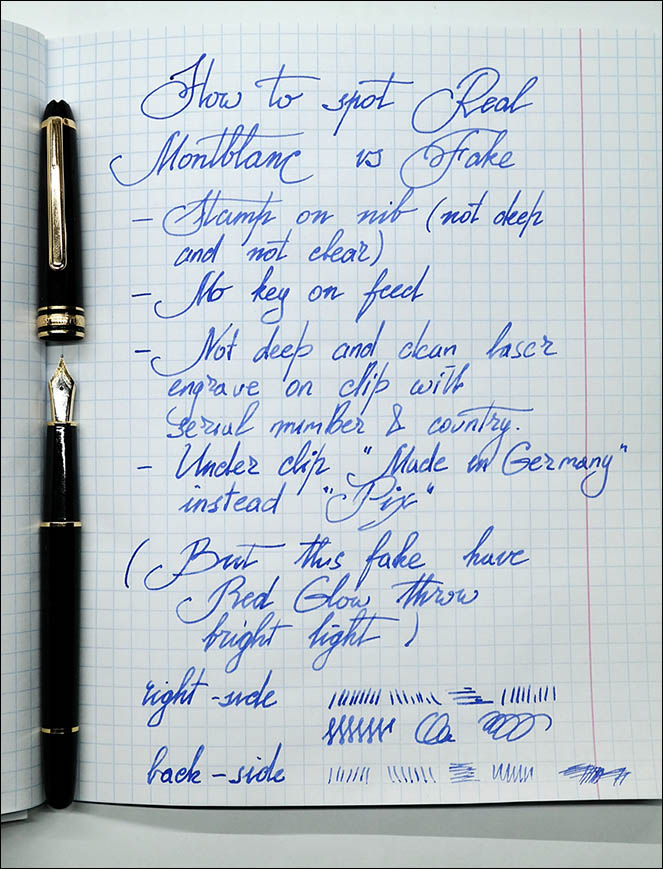 How to spot Real
Montblanc vs Fake
- Stamp on nib (not deep
and not clear)
- No key on feed
- Not deep and clean laser
engrave on clip with
serial number & country.
- Under clip "Made in Germany"
instead "Pix"
(But this fake have
Red Glow throw
bright light)
right-side
back-side